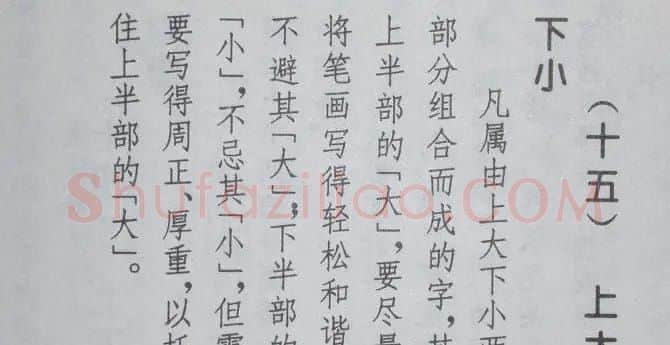 （十五） 上大
下小
凡属由上大下小两
部分组合而成的字，其
上半部的「大」，要尽量
将笔画写得轻松和谐
不避其「大」；下半部的
「小」，不忌其「小」，但需
要写得周正、厚重，以托
住上半部的「大」。
Shufaziliao.COM